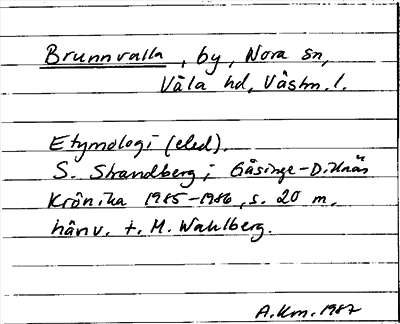 Brunnvalla, by, Nora sn,
Våla hd, Västm. l.
Etymologi (eled).
S. Strandberg i Gåsinge-Dillnäs
Krönika 1985-1986, s. 20 m.
hänv. t. M. Wahlberg.
A.Km. 1987